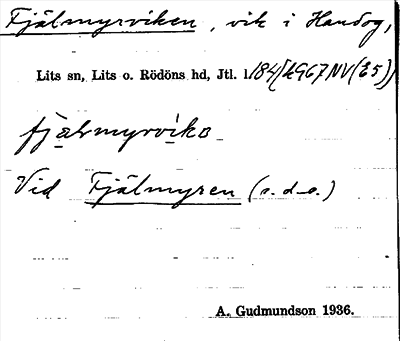 Fjälmyrviken, vik i Handog,
Lits sn, Lits o. Rödöns hd, Jtl. l.
fjälmyrvika
Vid Fjälmyren (s.d.o.)
A. Gudmundson 1936.